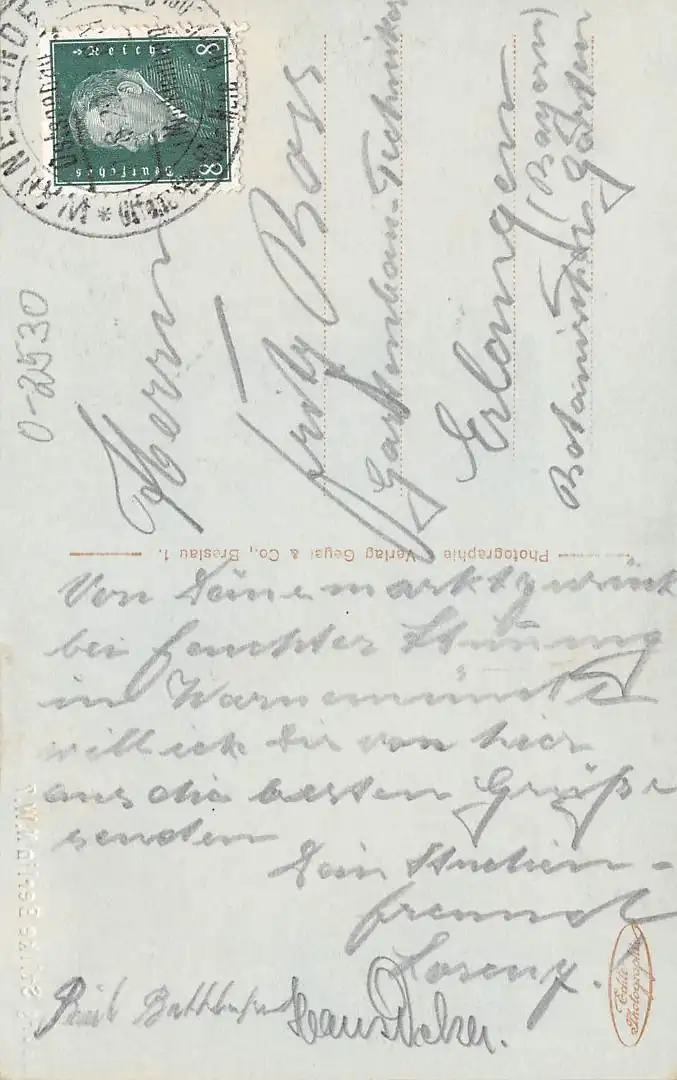 WARNEMÜNDE
8 Reich 8
Deutsches
0-2530
Herrn
Fritz Boss
Gartenbau-Techniker
Erlangen
(Bayern)
Botanischer Garten
Photographie Verlag Geyer & Co., Breslau 1.
Von Dänemark zurück
bei feuchter Stimmung
in Warnemünde
will ich Dir von hier
aus die besten Grüße
senden
Dein Studien-
freund
Lorenz.
Echte
Photographie